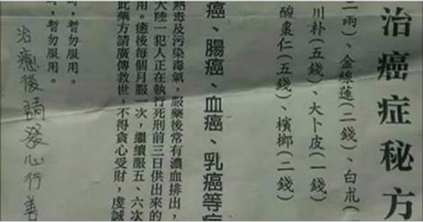 治癌症秘方
二兩)、金線蓮(二錢)、白朮(
川朴(五錢)、大卜皮(一錢)
酸棗仁(五錢)、檳榔(二錢)
癌、腸癌、血癌、乳癌等症
熱毒及污染毒氣，服藥後常有濃血排出，
大陸一犯人正在執行死刑前三日供出來的
用。癒後每個月服一次，繼續服五、六次
此藥方請廣傳救世，不得貪心受財，虔誠
，暫勿服用。
治癒後請發心行善